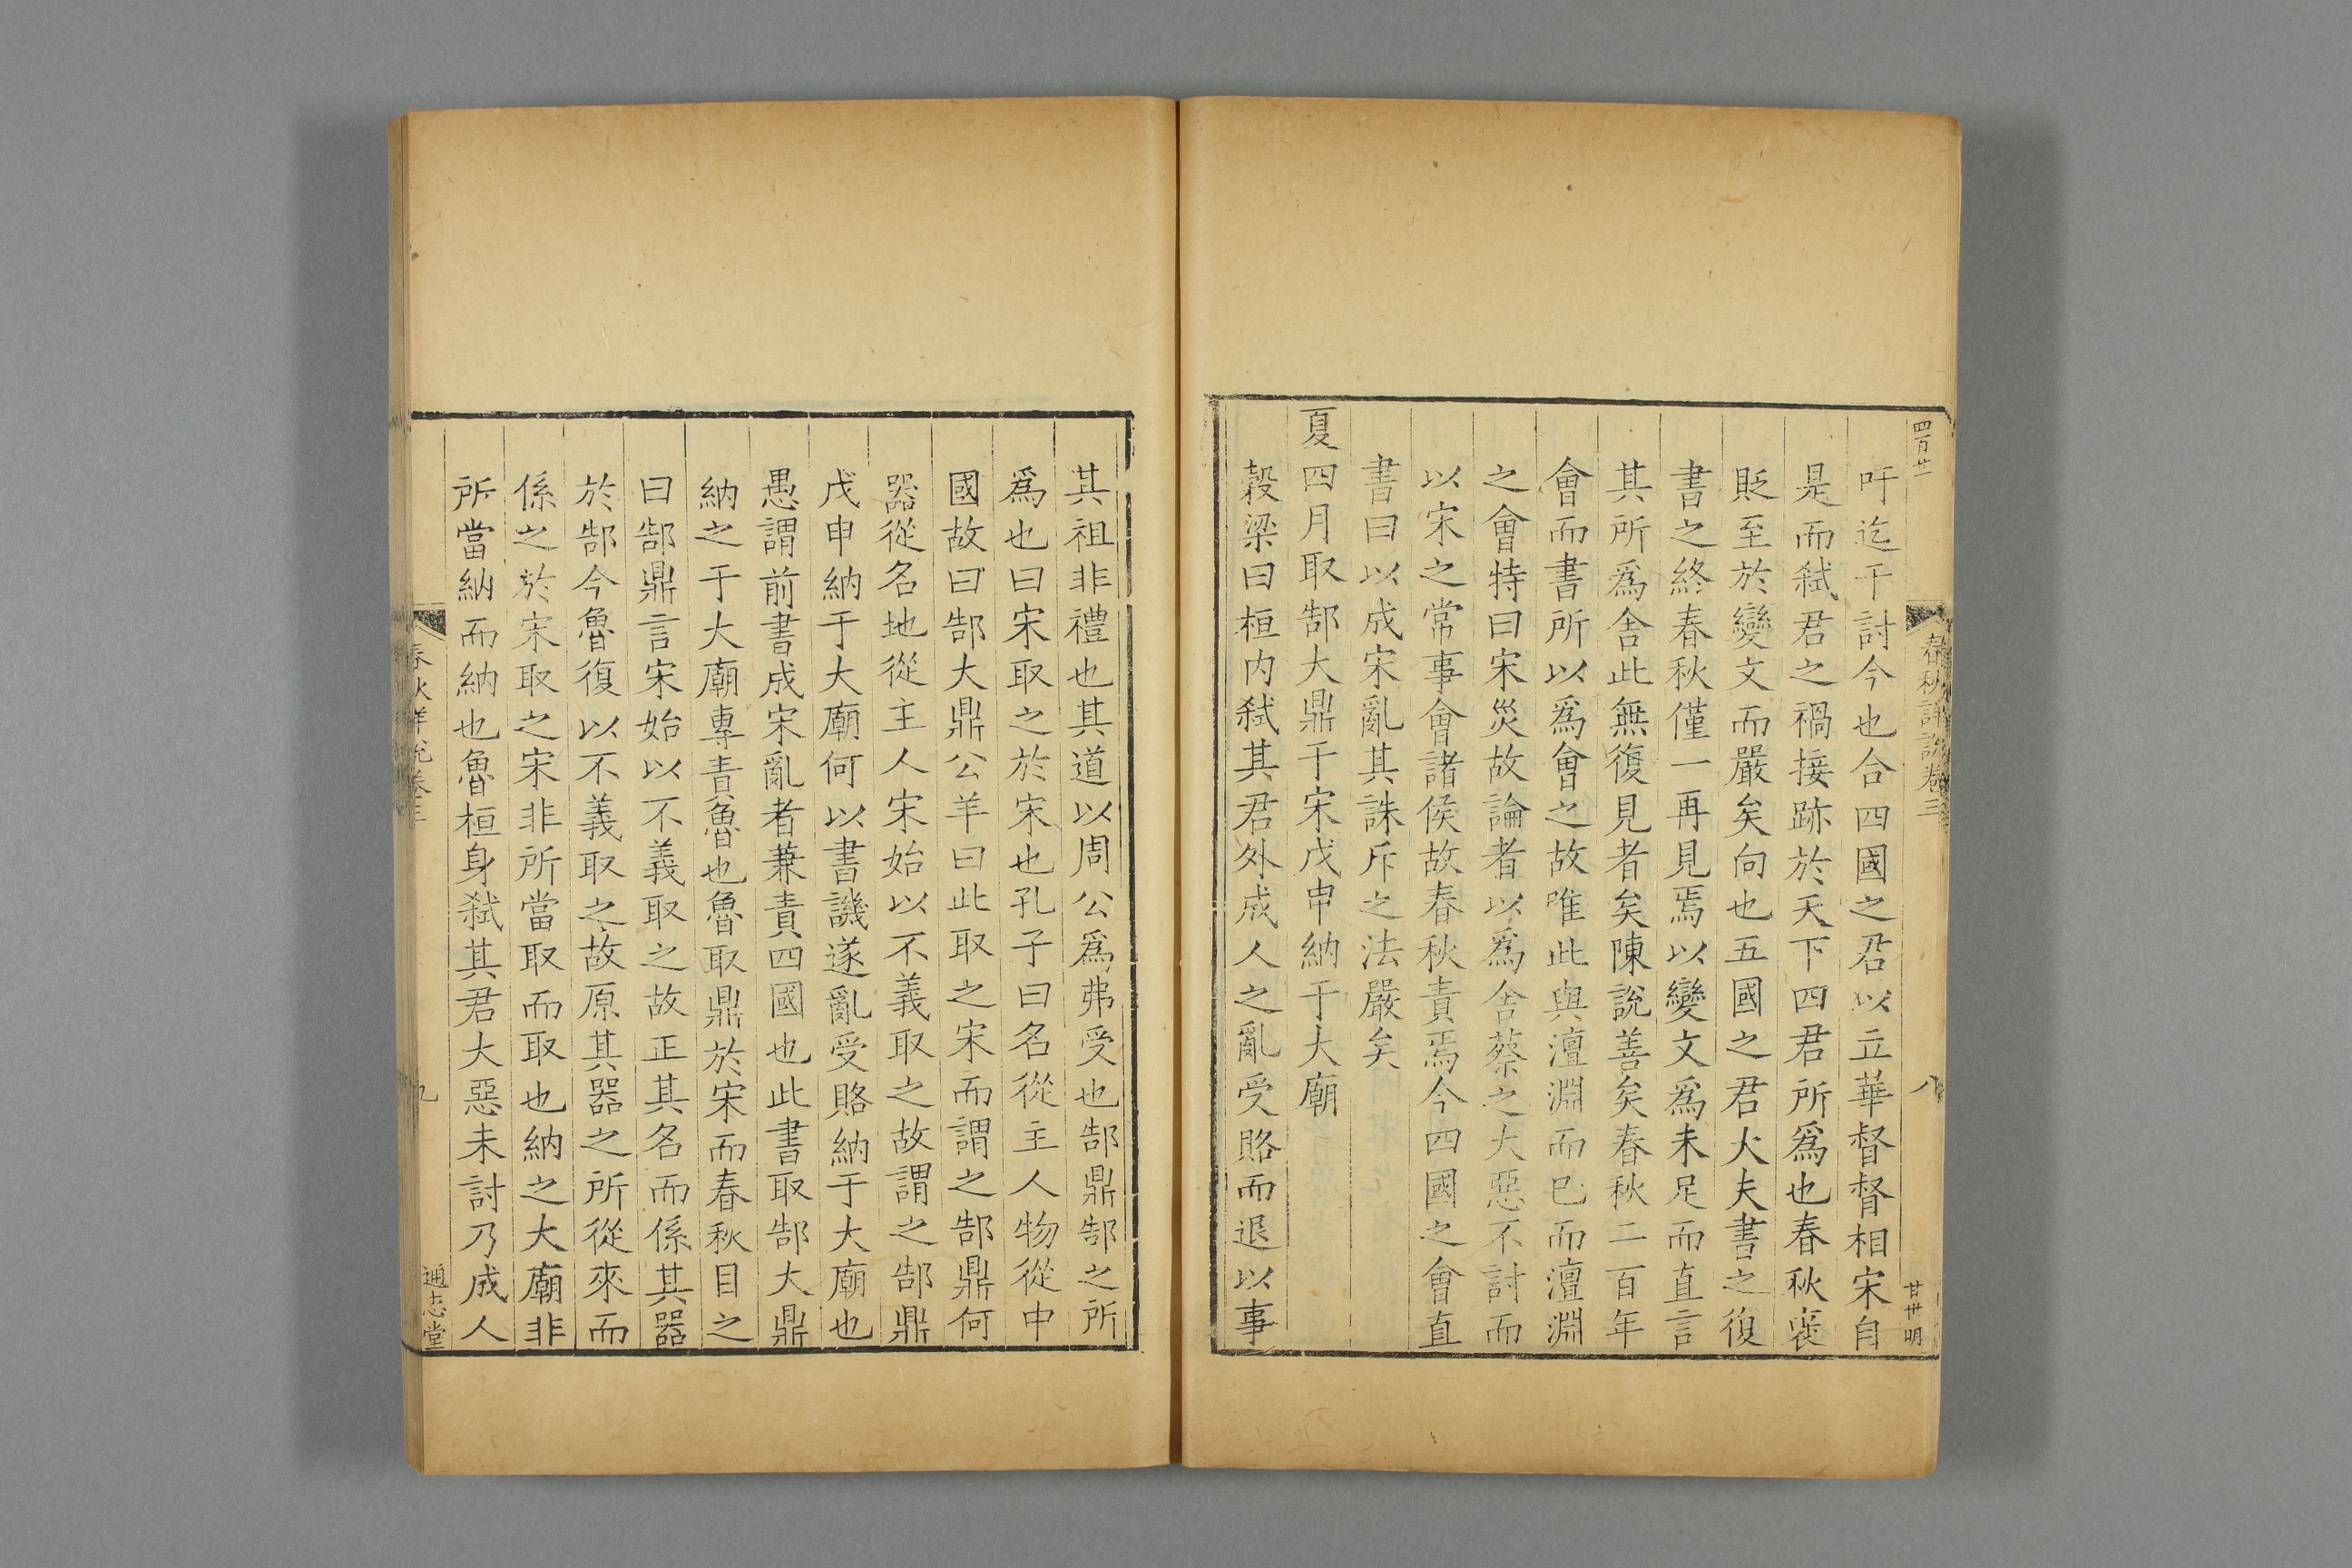 四百廿一
春秋詳說卷三
八
甘世明
吁迄干討今也合四國之君以立華督督相宋自
是而弑君之禍接跡於天下四君所爲也春秋襃
貶至於變文而嚴矣向也五國之君大夫書之復
書之終春秋僅一再見焉以變文爲未足而直言
其所爲舎此無復見者矣陳說善矣春秋二百年
會而書所以爲會之故唯此與澶淵而巳而澶淵
之會特曰宋災故論者以爲舍蔡之大惡不討而
以宋之常事會諸侯故春秋責焉今四國之會直
書曰以成宋亂其誅斥之法嚴矣
夏四月取郜大鼎于宋戊申納于大廟
穀梁曰桓内弑其君外成人之亂受賂而退以事
其祖非禮也其道以周公爲弗受也郜鼎郜之所
爲也曰宋取之於宋也孔子曰名從主人物從中
國故曰郜大鼎公羊曰此取之宋而謂之郜鼎何
器從名地從主人宋始以不義取之故謂之郜鼎
戊申納于大廟何以書譏遂亂受賂納于大廟也
愚謂前書成宋亂者兼責四國也此書取郜大鼎
納之于大廟專責魯也魯取鼎於宋而春秋目之
曰郜鼎言宋始以不義取之故正其名而係其器
於郜今魯復以不義取之故原其器之所從來而
係之於宋取之宋非所當取而取也納之大廟非
所當納而納也魯桓身弑其君大惡未討乃成人
春秋詳說卷三
九
通志堂